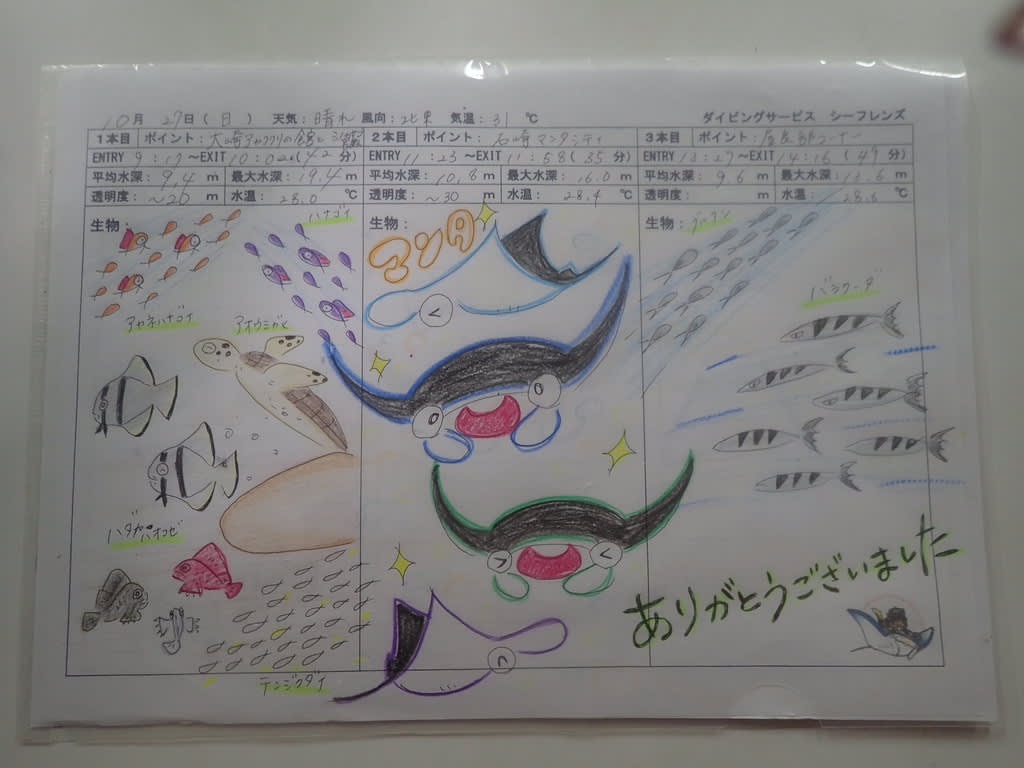 10月 27日(日) 天気:晴れ 風向:北東 気温:31 ℃ ダイビングサービス シーフレンズ
1本目 ポイント:大崎 2本目 ポイント:石崎マンタシティ 3本目 ポイント:屋良部コーナー
ENTRY 9:19~EXIT 10:02(42分) ENTRY 11:23~EXIT 11:58(35分) ENTRY 13:27~EXIT 14:16(49分)
平均水深:9.4 m 最大水深:19.4 m 平均水深:10.8 m 最大水深:16.0 m 平均水深:9.6 m 最大水深:13.6 m
透明度:~20 m 水温:28.0 ℃ 透明度:~30 m 水温:28.4 ℃ 透明度: m 水温:28.6 ℃
生物: ハナゴイ 生物: マンタ 生物: グルクン
バラクーダ
アカネハナゴイ アオウミガメ
ハダカハオコゼ
ありがとうございました
テンジクダイ